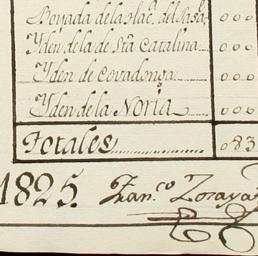 Boyada de la Plac.ᵃ del Rasº. 000
Yden de la de Sta Catalina 000
Yden de Covadonga 000
Yden de la Noria 000
Totales 083
1825. Fran.co Zoraya